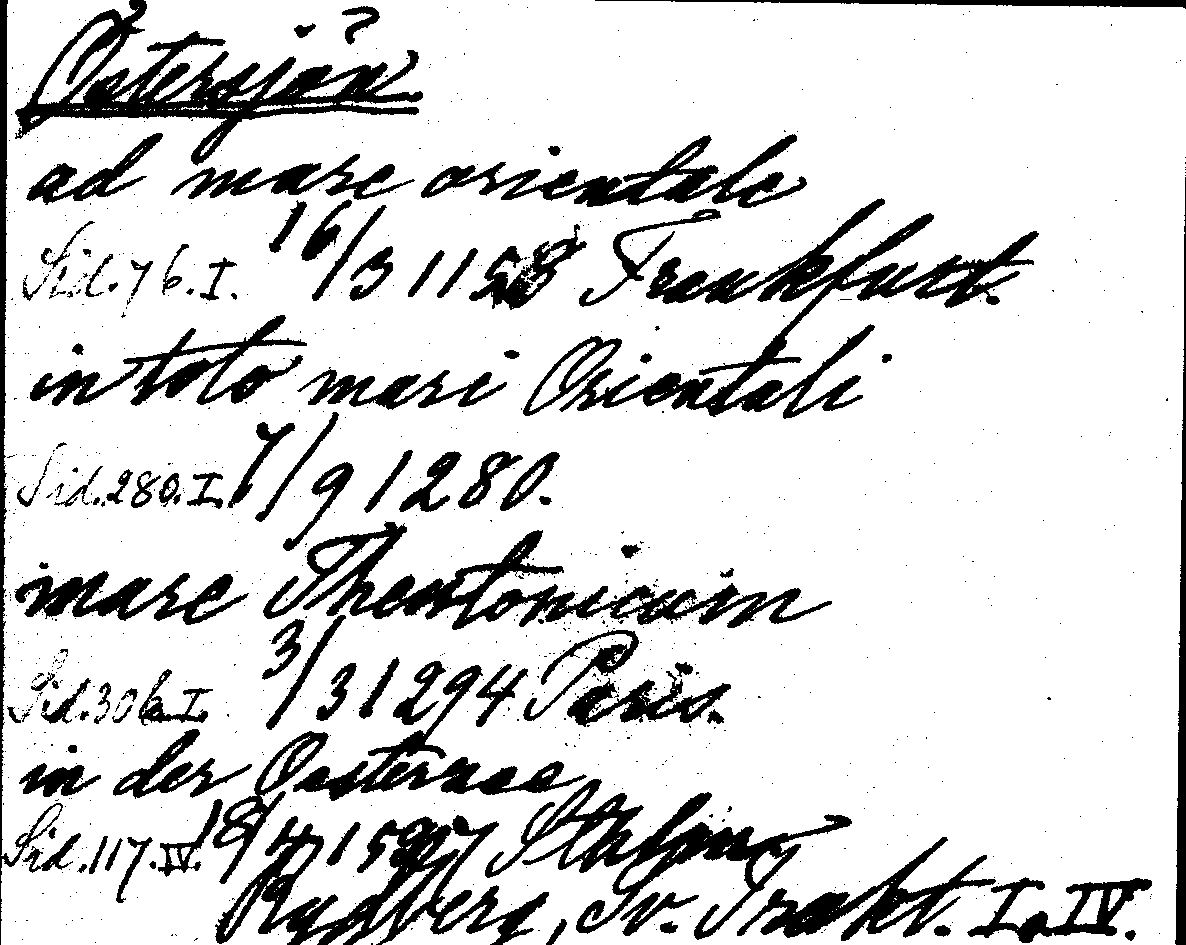 Östersjön.
ad mare orientale
Sid. 76. I. 16/3 1158 Frankfurt.
in toto mari Orientali
Sid. 280. I. 7/9 1280.
mare Theutonicum
Sid. 306. I. 3/3 1294 Paris.
in der Oostersee
Sid. 117. IV. 18/4 Sthlm
Rydberg, Sv. Trakt. I o IV.